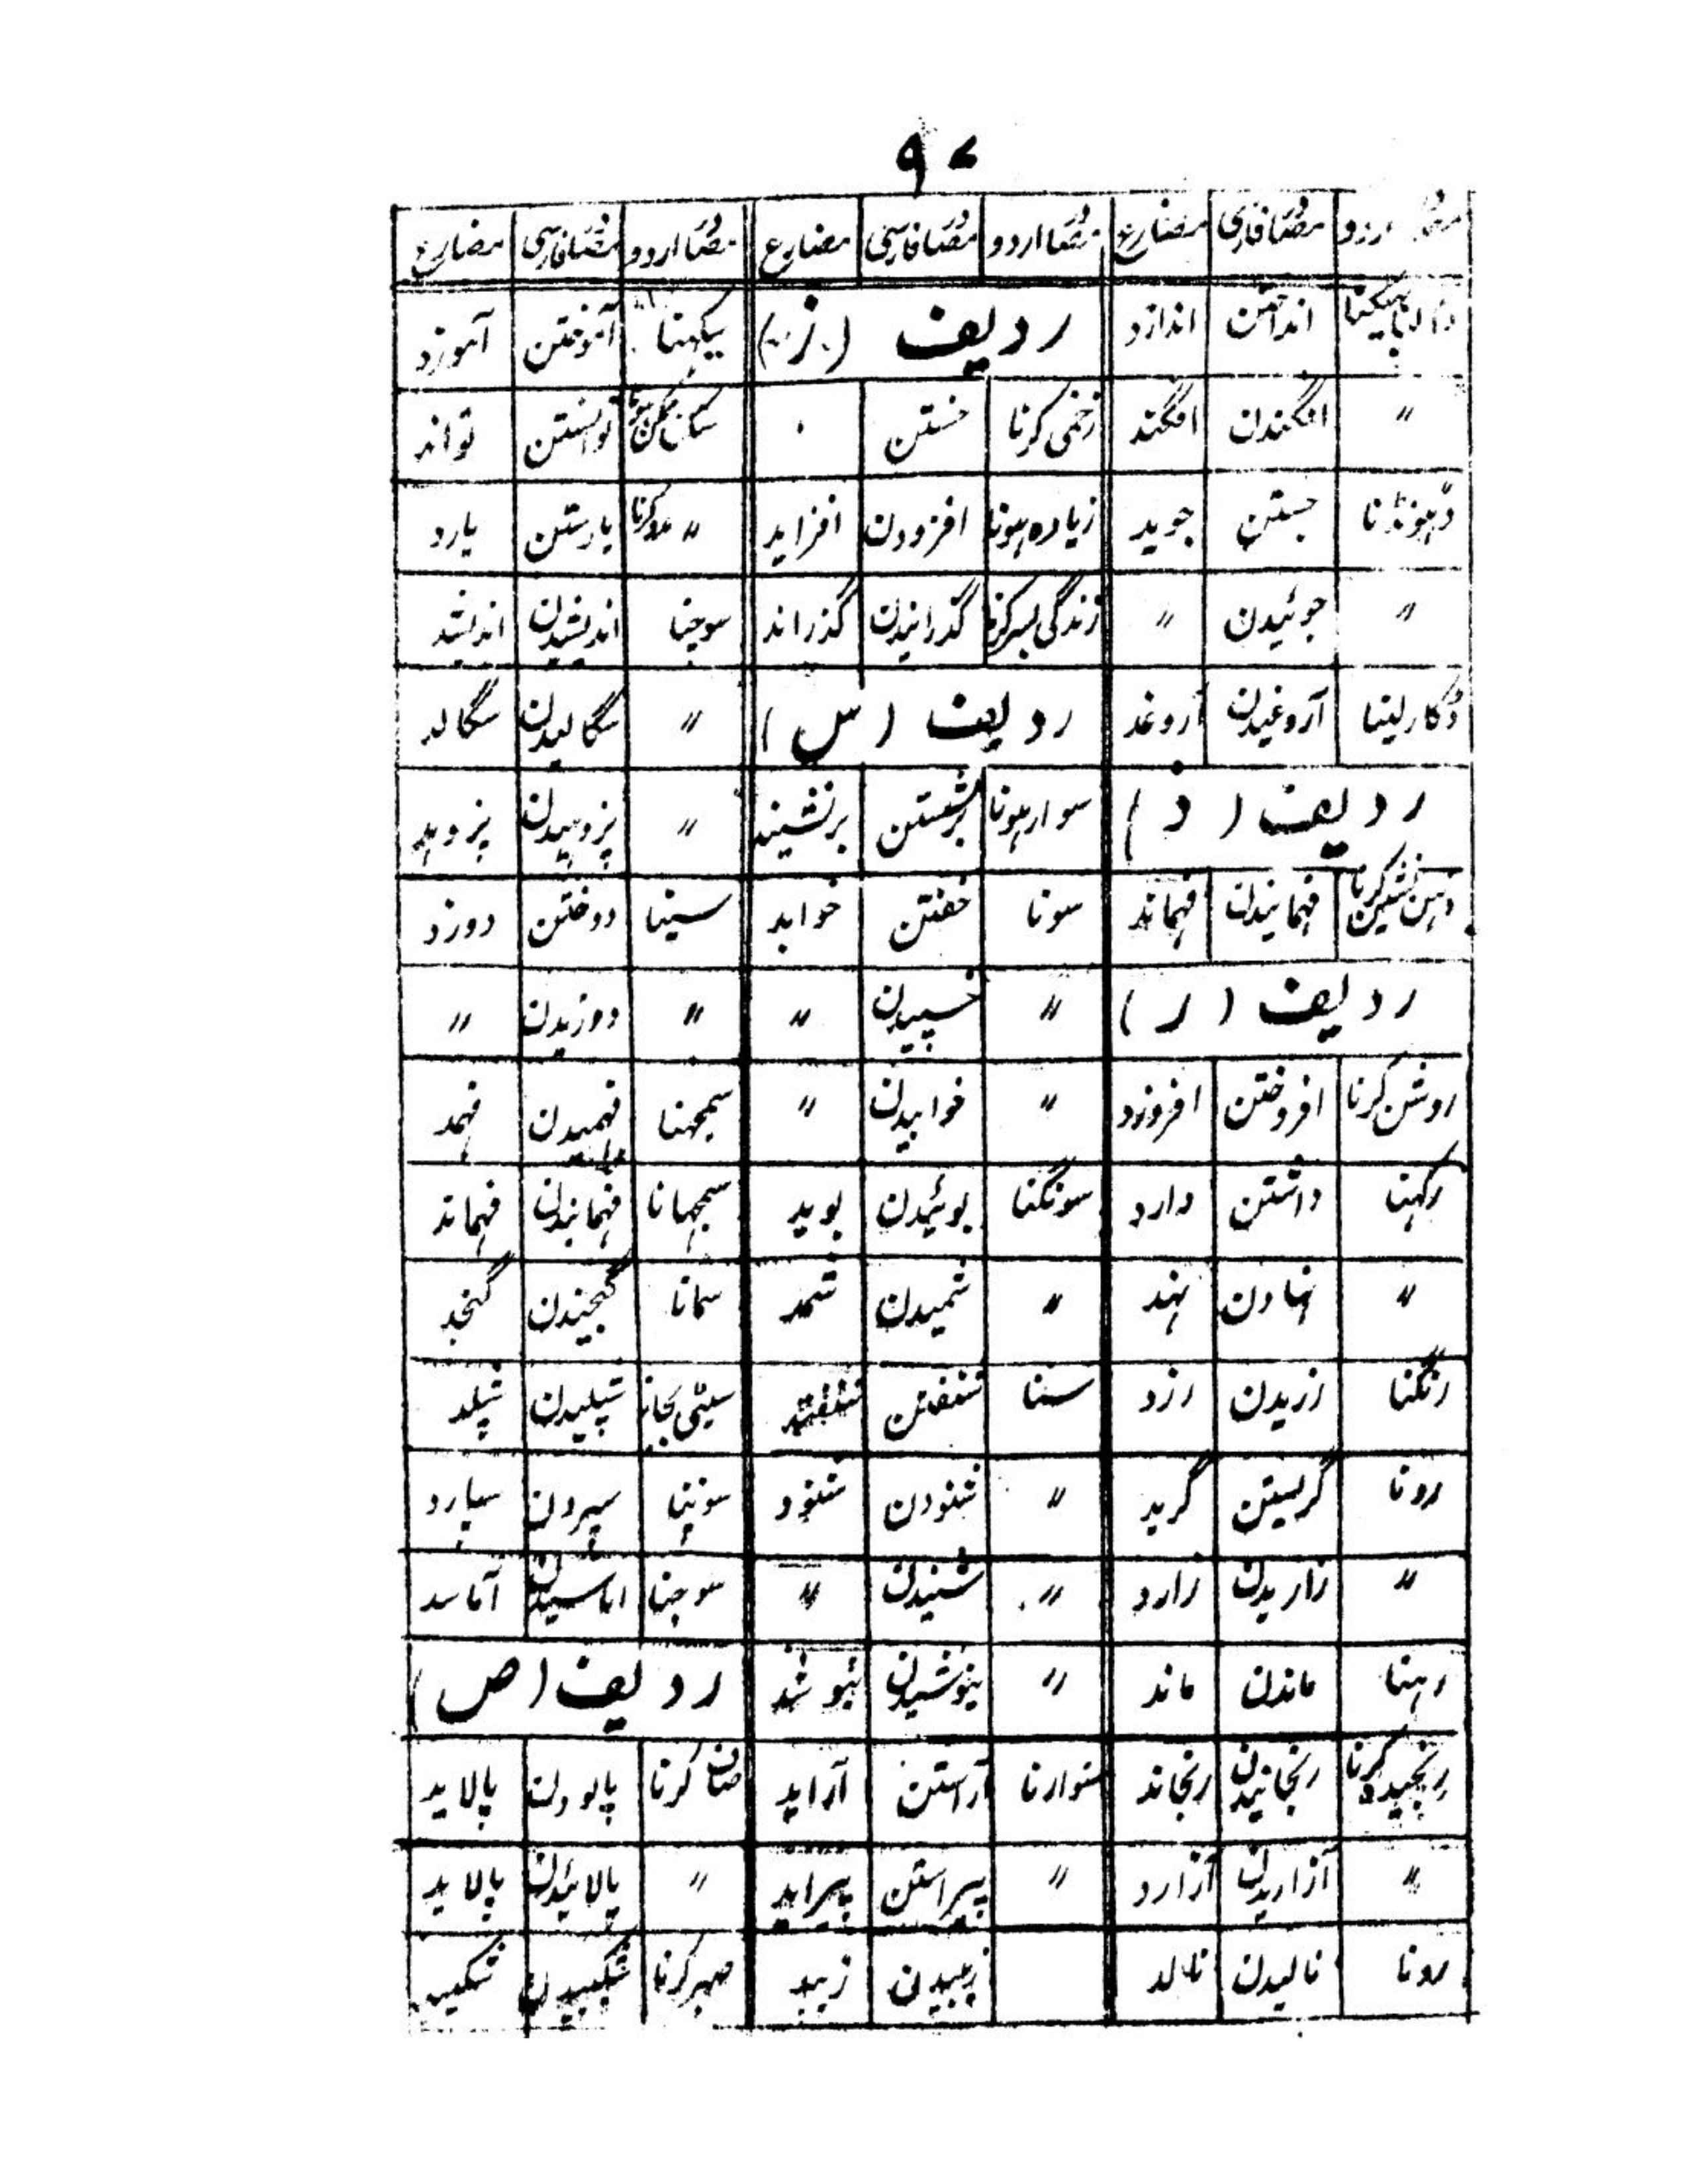 ۹۷
مصدر اردو مصدر فارسی مضارع مصدر اردو مصدر فارسی مضارع مصدر اردو مصدر فارسی مضارع
انداختن اندازد ردیف (ز) سیکہنا آموختن آموزد
〃 افگندن افگند زخمی کرنا خستن ۰ توانستن تواند
ڈہونڈنا جستن جوید زیادہ ہونا افزودن افزاید 〃 مدد کرنا یارستن یارد
〃 جوئیدن 〃 زندگی بسر کرنا گذرانیدن گذراند سوچنا اندیشیدن اندیشد
ڈکار لینا آروغیدن آروغد ردیف (س) 〃 سگالیدن سگالد
ردیف (ذ) سوار ہونا برنشستن برنشیند 〃 پژوہیدن پژوہد
ذہن نشین کرنا فہمانیدن فہماند سونا خفتن خوابد سینا دوختن دوزد
ردیف (ر) 〃 خسپیدن 〃 〃 دوزیدن 〃
روشن کرنا افروختن افروزد 〃 خوابیدن 〃 سمجہنا فہمیدن فہمد
رکہنا داشتن دارد سونگنا بوئیدن بوید سمجہانا فہمانیدن فہماند
〃 نہادن نہد 〃 شمیدن شمد سمانا گنجیدن گنجد
رنگنا رزیدن رزد سننا شنفتن شنفتد سیٹی بجانا شپلیدن شپلد
رونا گریستن گرید 〃 شنودن شنود سونپنا سپردن سپارد
〃 زاریدن زارد 〃 شنیدن 〃 سوجنا اماسیدن آماسد
رہنا ماندن ماند 〃 نیوشیدن نیوشد ردیف (ص)
رنجیدہ کرنا رنجانیدن رنجاند سنوارنا آراستن آراید صاف کرنا پالودن پالاید
〃 آزاریدن آزارد 〃 پیراستن پیراید 〃 پالائیدن پالاید
رونا نالیدن نالد زیبیدن زیبد صبر کرنا شکیبیدن شکیبد